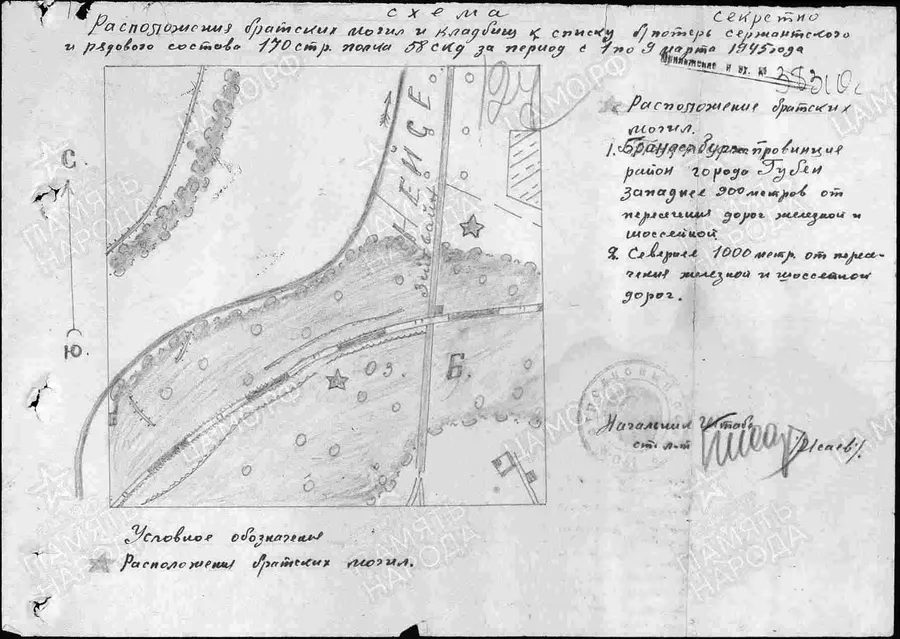 схема
секретно
Расположения братских могил и кладбищ к списку б/потерь сержантского
и рядового состава 170 стр. полка 58 СКД за период с 1 по 9 марта 1945 года
Приложение к вх. №
Расположение братских
могил.
1. Бранденбургская провинция
район города Губен
западнее 900 метров от
пересечения дорог железной и
шоссейной
2. Севернее 1000 метр. от пересе-
чения железной и шоссейной
дорог.
С.
Ю.
НЕЙСЕ
ОЗ.
Б.
Начальник Штаба
ст. л-т
/Исаев/.
Условное обозначения
Расположения братских могил.
ПАМЯТЬ
НАРОДА
ЦАМО РФ